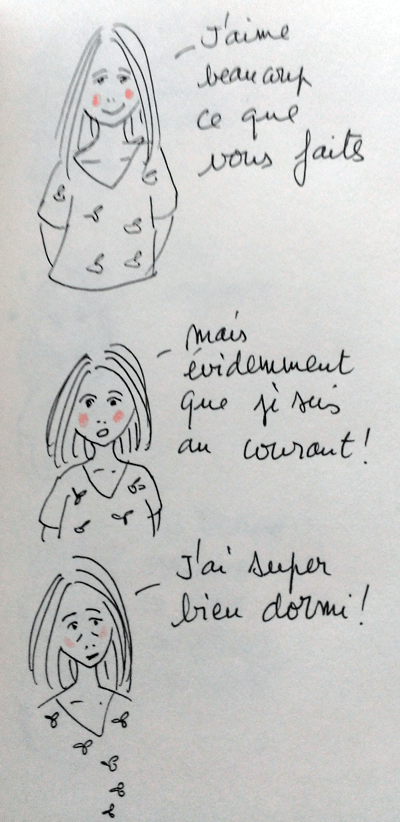 J'aime
beaucoup
ce que
vous faits
mais
évidemment
que je suis
au courant!
J'ai super
bien dormi!